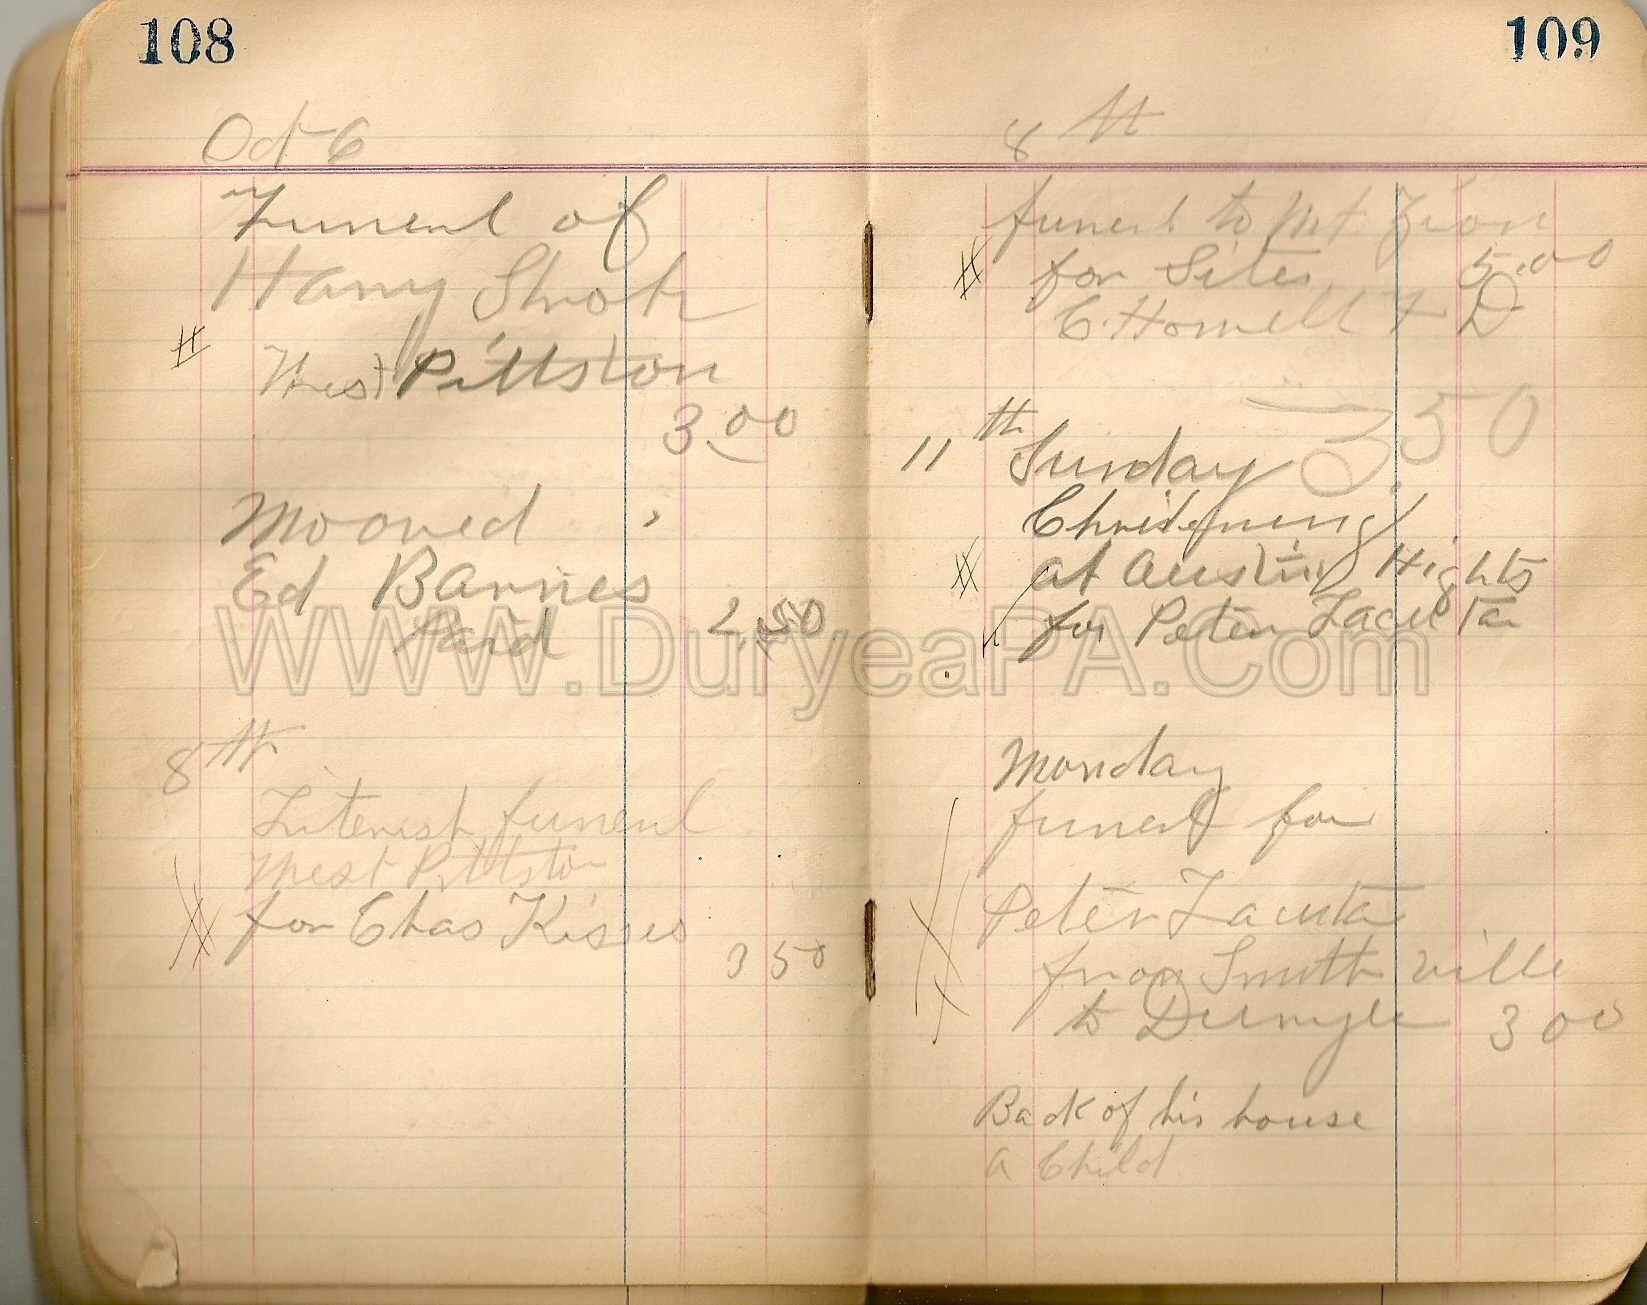 108
Oct 6
Funeral of
Harry Stroh
West Pittston
3.00
Mooved
Ed Barnes
Paid 2.50
8th
funeral
West Pittston
for Chas
3 50
109
8th
funeral to Mt. Zion
for Sites 5.00
C. Howell + D
11th Sunday 3.50
Christning
at Austin Hights
for Peter Lacuta
Monday
funerl for
Peter Lacuta
from Smithville
to Duryea 3 00
Back of his house
a Child
WWW.DuryeaPA.Com